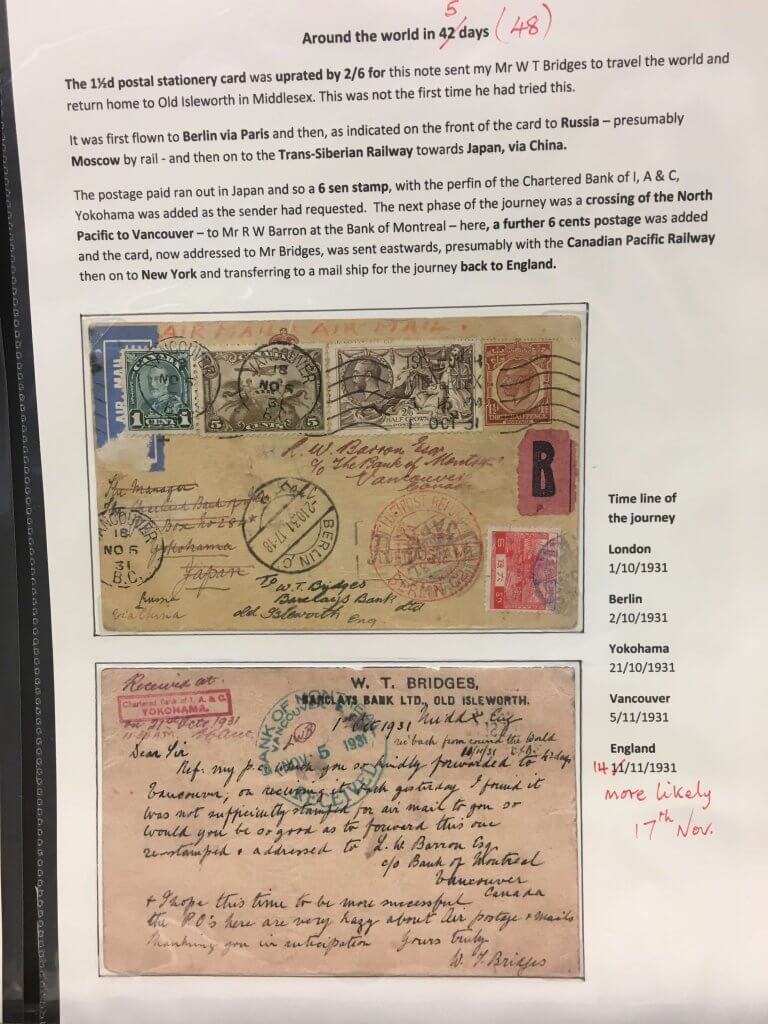 Around the world in 42 days (48)
5
The 1½d postal stationery card was uprated by 2/6 for this note sent my Mr W T Bridges to travel the world and
return home to Old Isleworth in Middlesex. This was not the first time he had tried this.
It was first flown to Berlin via Paris and then, as indicated on the front of the card to Russia – presumably
Moscow by rail - and then on to the Trans-Siberian Railway towards Japan, via China.
The postage paid ran out in Japan and so a 6 sen stamp, with the perfin of the Chartered Bank of I, A & C,
Yokohama was added as the sender had requested. The next phase of the journey was a crossing of the North
Pacific to Vancouver – to Mr R W Barron at the Bank of Montreal – here, a further 6 cents postage was added
and the card, now addressed to Mr Bridges, was sent eastwards, presumably with the Canadian Pacific Railway
then on to New York and transferring to a mail ship for the journey back to England.
AIR MAIL AIR MAIL.
AIR MAIL
CANADA
1 CENT 1
5 5
HALF CROWN
VANCOUVER
18
NO 5
31
OCT 31
R. W. Barron Esq
c/o The Bank of Montreal
Vancouver
R
The Manager
Yokohama
Japan
VANCOUVER
18
NO 5
31
B.C.
BERLIN.C
-2.10.31.17-18
Russia
via China
To W. T. Bridges
Barclays Bank Ltd
Old Isleworth
Eng
Received at
Chartered Bank of I. A. & C.
YOKOHAMA.
on 21st Octr 1931
W. T. BRIDGES,
BARCLAYS BANK LTD., OLD ISLEWORTH.
1st Oct 1931
BANK OF MONTREAL
VANCOUVER
NOV 5 1931
RECEIVED
rec'd back from round the World
Dear Sir
Ref. my p.c. which you so kindly forwarded to
Vancouver, on receiving it back yesterday I found it
was not sufficiently stamped for air mail to you so
would you be so good as to forward this one
re-stamped & addressed to L. W. Barron Esq
c/o Bank of Montreal
Vancouver
Canada
& I hope this time to be more successful
the P.O's here are very hazy about Air postage & mails
Thanking you in anticipation Yours truly
W. T. Bridges
Time line of
the journey
London
1/10/1931
Berlin
2/10/1931
Yokohama
21/10/1931
Vancouver
5/11/1931
England
14 11/11/1931
more likely
17th Nov.